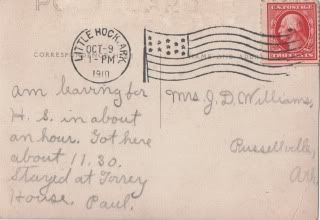 LITTLE ROCK, ARK.
OCT-9
1-PM
1910
U.S. POSTAGE
TWO CENTS
CORRESP
am leaving for
H. S. in about
an hour. Got here
about 11.30.
Stayed at Torrey
House. Paul.
Mrs. J. D. Williams,
Russellville,
Ark.